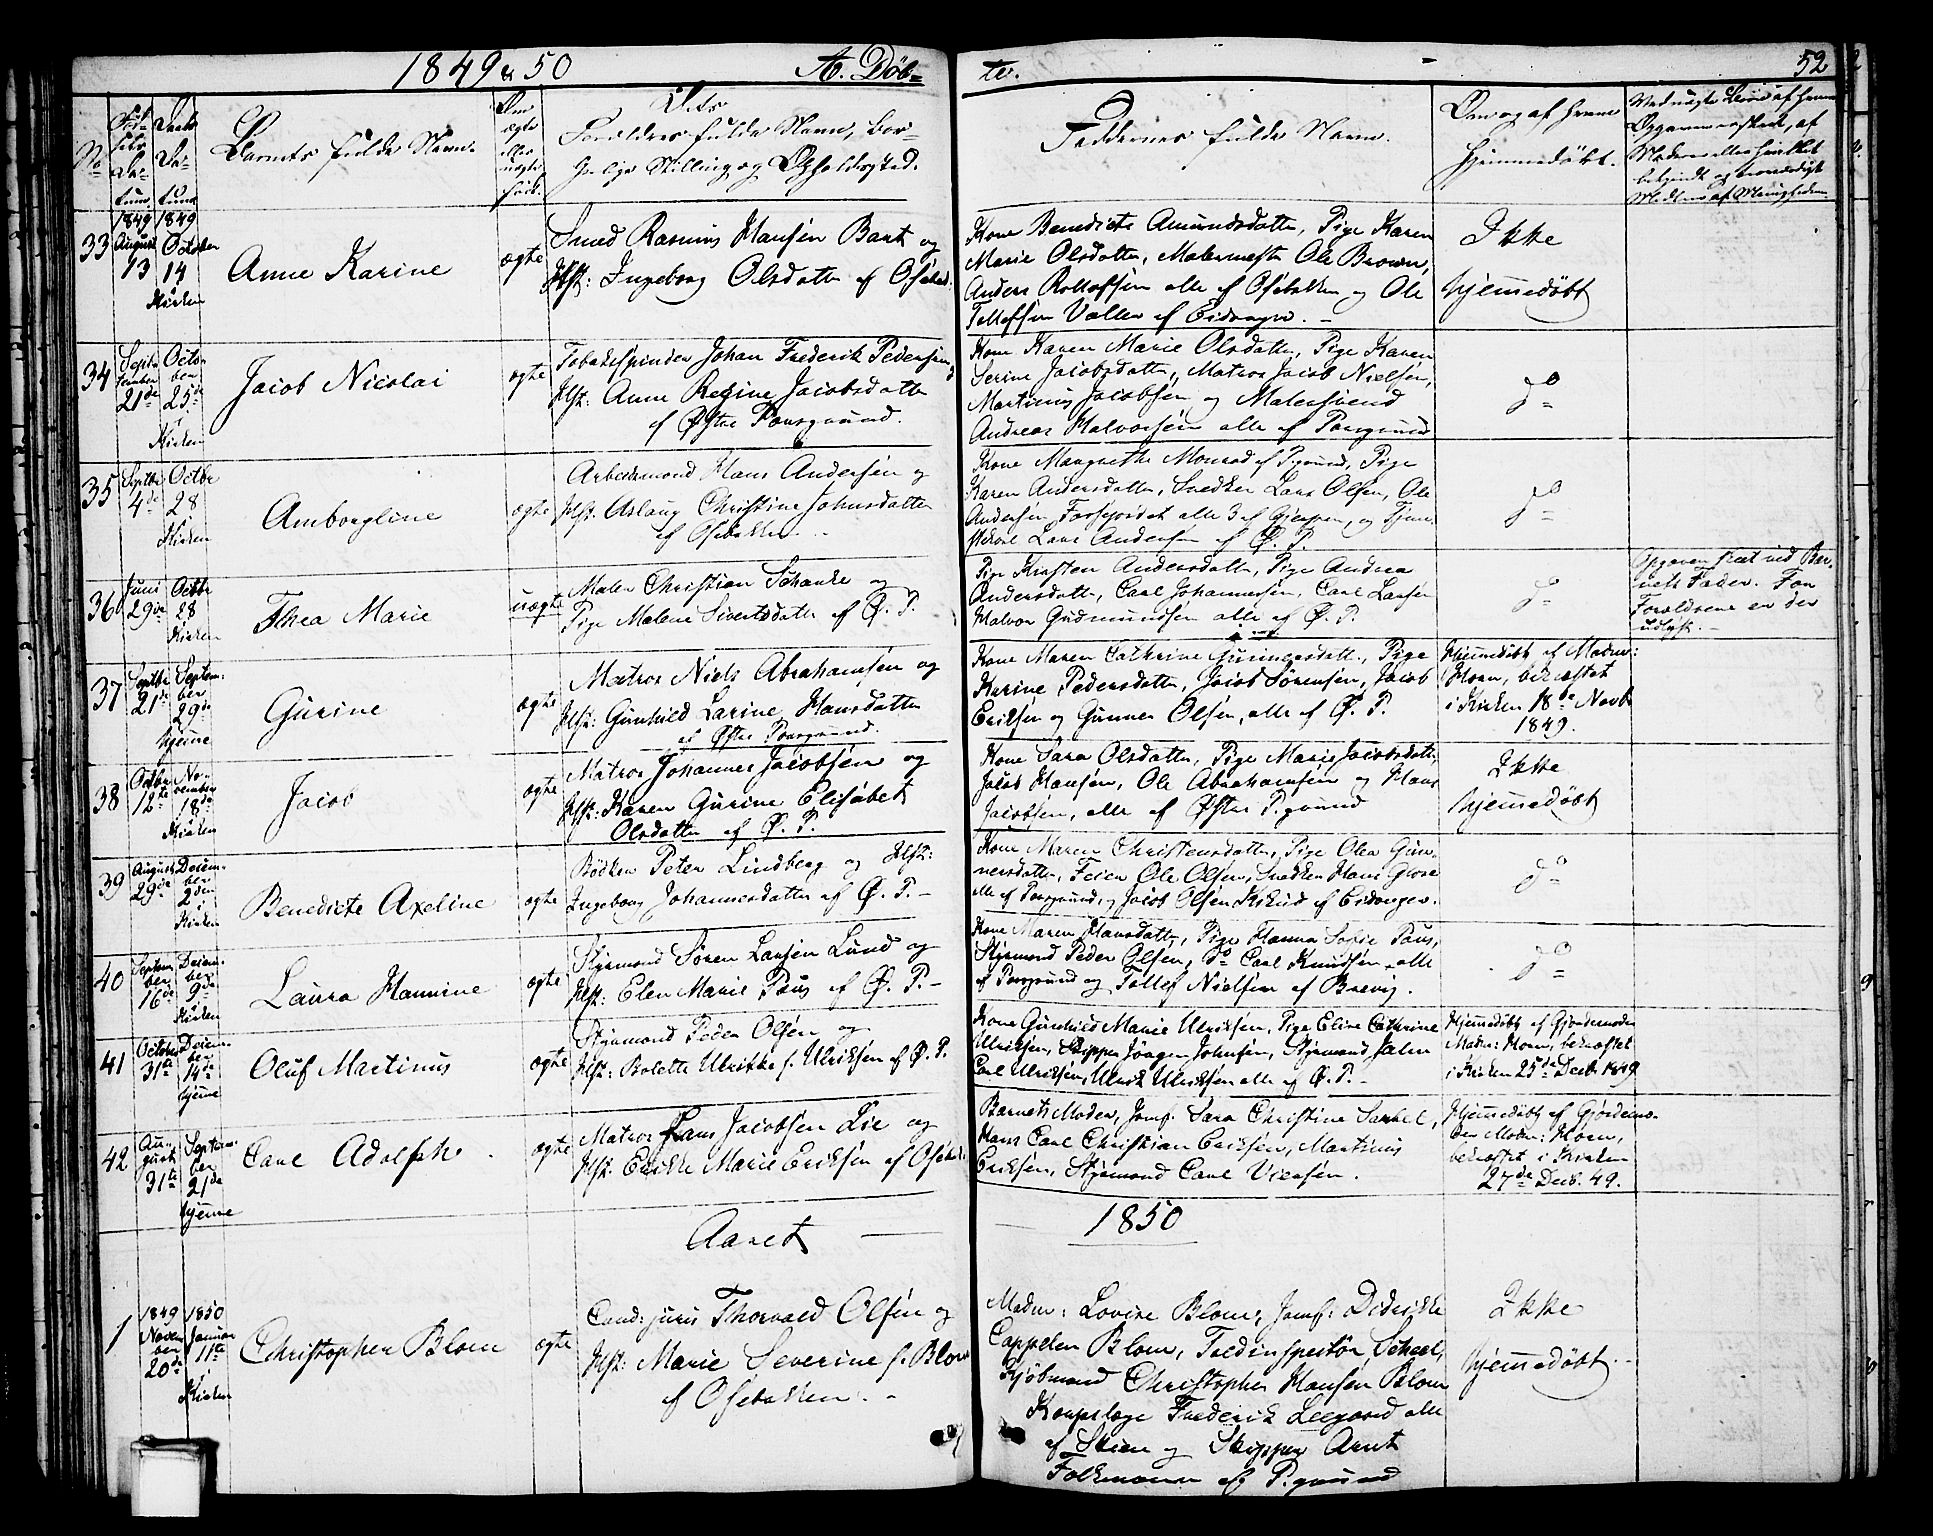 1849 & 50 A. Døb=
te. 52
No
Fød-
sels
Da-
tum
Daabs
Da-
tum
Barnets fulde Navn.
Om
ægte
eller
uægte
født.
Dets
Forældres fulde Navn, bor-
gerlige Stilling og Opholdssted.
Faddernes fulde Navn.
Om og af hvem
hjemmedøbt.
33
1849
August
13
1849
October
14
i Kirken
Anne Karine
ægte
Smed Rasmus Hansen Bant og
Hst: Ingeborg Olsdatter af Osebak:
Kone Benedicte Amundsdatter, Pige Karen
Marie Olsdatter, Malermester Ole Brown,
Anders Rolloffsen alle af Osebakken og Ole
Tollefsen Valler af Eidanger.
Ikke
hjemmedøbt
34
Septem
ber
21de
Octo-
ber
25de
i Kirken
Jacob Nicolai
ægte
Tobakspinder Johan Frederik Pedersen og
Hst: Anne Regine Jacobsdatter
af Østre Porsgrund.
Kone Karen Marie Olsdatter, Pige Karen
Serine Jacobsdatter, Matros Jacob Nielsen,
Martinus Jacobsen og Malersvend
Andreas Halvorsen alle af Porsgrund
do
35
Septbr
4de
Octbr
28
i Kirken
Amborgline
ægte
Arbeidsmand Hans Andersen og
Hst. Aslaug Christine Johnsdatter
af Osebakken.
Kone Margrethe Monrad af P.grund, Pige
Karen Andersdatter, Snedker Lars Olsen, Ole
Andersen alle 3 af Gjerpen, og Tjene-
stekarl Lars Andersen af Ø. P.
do
36
Juni
29de
Octbr
28
i Kirken
Thea Marie
uægte
Maler Christian Schanke og
Pige Malene Sivertsdatter af Ø. P.
Pige Kirsten Andersdatter, Pige Andrea
Andersdatter, Carl Johannesen, Carl Larsen
Halvor Gudmundsen alle af Ø. P.
do
Opgaven skeet ved Bar-
nets Fader. For
Forældrene er der
udlyst.
37
Septbr
21de
Septem-
ber
29de
hjemme
Gurine
ægte
Matros Niels Abrahamsen og
Hst: Gunhild Larine Hansdatter
af Østre Porsgrund.
Kone Maren Cathrine Gunnersdatt., Pige
Karine Pedersdatter, Jacob Sørensen, Jacob
Eriksen og Gunner Olsen, alle af Ø. P.
Hjemmedøbt af Madm:
Horn, bekræftet
i Kirken 18de Novbr
1849.
38
Octbr
12te
No-
vember
18de
i Kirken
Jacob
ægte
Matros Johannes Jacobsen og
Hst: Karen Gurine Elisabet
Olsdatter af Ø. P.
Kone Sara Olsdatter, Pige Marie Jacobsdatt.,
Jacob Hansen, Ole Abrahamsen og Hans
Jacobsen, alle af Østre P.grund
Ikke
hjemmedøbt
39
August
29de
Decem-
ber
2den
i
Kirken
Benedicte Axeline
ægte
Bødker Peter Lindberg og Hst:
Ingeborg Johannesdatter af Ø. P.
Kone Maren Christensdatter, Pige Olea Gun-
nersdatter, Feier Ole Olsen, Snedker Hans Grose
alle af Porsgrund, og Jacob Olsen af Eidanger.
do
40
Septem
ber
16de
Decem-
ber
9de
i Kirken
Laura Hannine
ægte
Styrmand Søren Larsen Lund og
Hst: Elen Marie Paus af Ø. P.
Kone Maren Hansdatter, Pige Hanna Sofie Paus,
Styrmand Peder Olsen, do Carl Knudsen, alle
af Porsgrund og Tollef Nielsen af Brevig.
do
41
October
31te
Decem-
ber
14de
hjemme
Oluf Martinus
ægte
Styrmand Peder Olsen og
Hst: Bolette Ulrikke f. Ulriksen af Ø. P.
Kone Gunhild Marie Ulriksen, Pige Elise Cathrine
Ulriksen, Skipper Jørgen Johnsen, Styrmand Palm
Carl Ulriksen, Ulrik Ulriksen alle af Ø. P.
Hjemmedøbt af Gjordemoder
Madm: Horn, bekræftet
i Kirken 25de Decbr. 1849
42
Au-
gust
31te
Septem-
ber
21de
hjemme
Carl Adolph
ægte
Matros Lars Jacobsen Lie og
Hst: Erikke Marie Eriksen af Osebak:
Barnets Moder, Jomf. Sara Christine Sankel,
Hans Carl Christian Eriksen, Martinus
Eriksen, Styrmand Carl Viersen.
Hjemmedøbt af Gjordemo-
der Madm: Horn,
bekræftet i Kirken
27de Decb. 49.
Aaret
1850
1
1849
Novem
ber
20de
1850
Januar
11te
i Kirken
Christopher Blom
ægte
Cand: juris Thorvald Olsen og
Hst: Marie Severine f. Blom
af Osebakken.
Madm: Lovise Blom, Jomf: Didrikke
Cappelen Blom, Toldinspectør Scheel,
Kjøbmand Christopher Hansen Blom
Corpslæge Frederik Leegaard alle
af Skien og Skipper Arnt
Folkmann af P.grund
Ikke
hjemmedøbt.